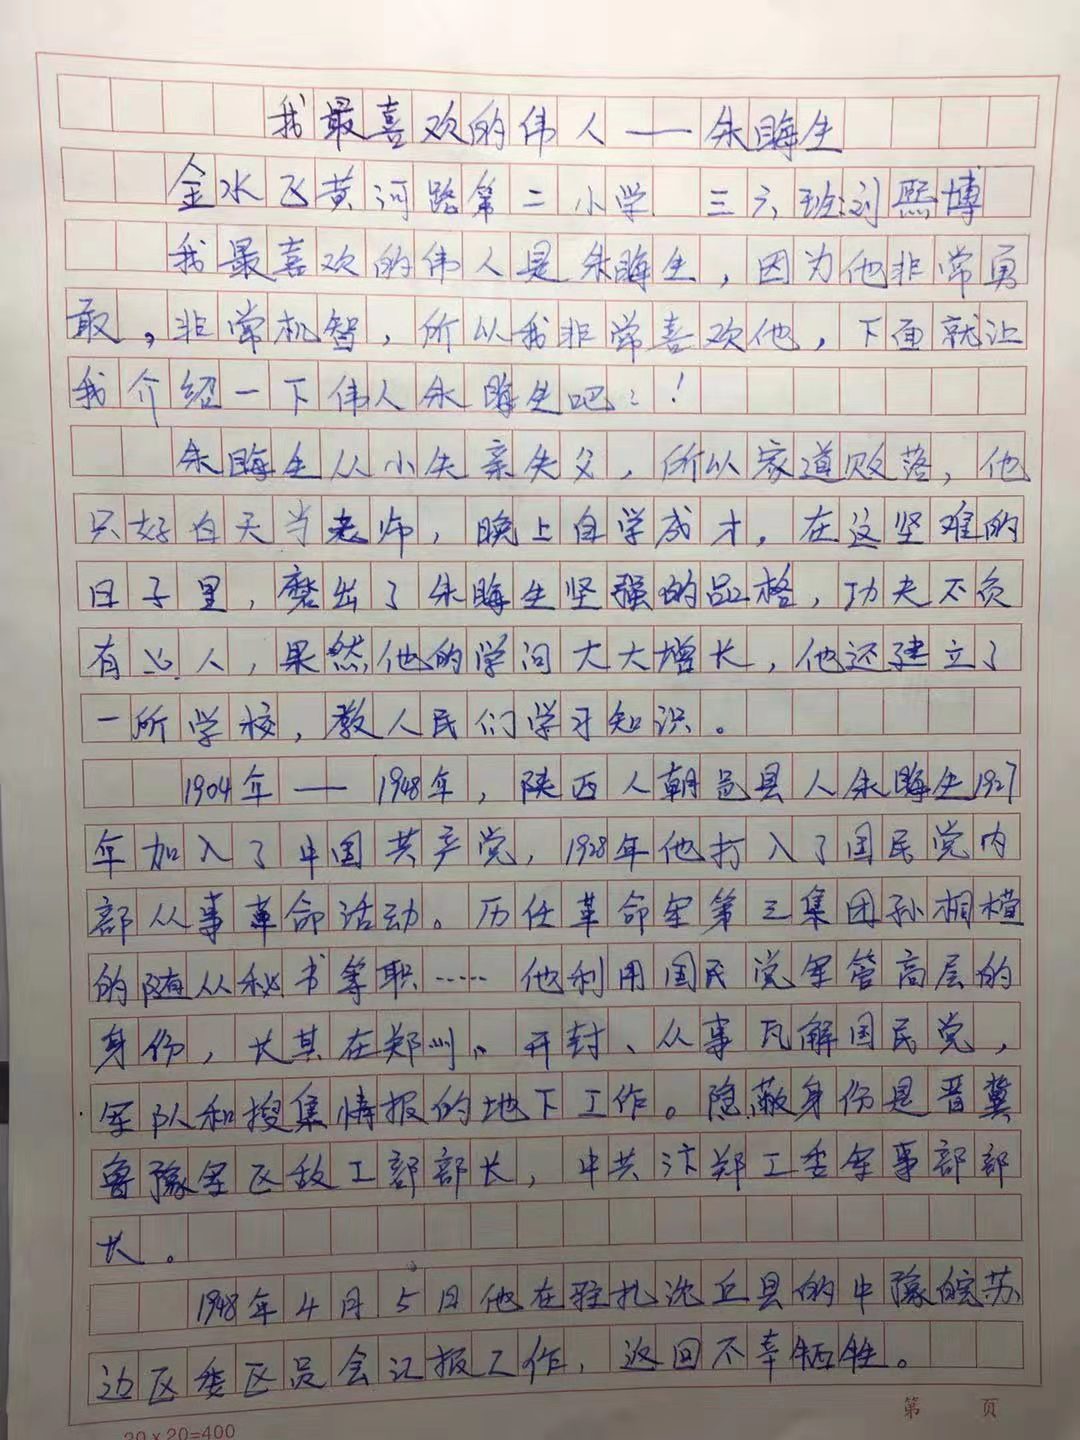 我最喜欢的伟人——朱晦生
金水区黄河路第二小学 三六班刘熙博
我最喜欢的伟人是朱晦生，因为他非常勇
敢，非常机智，所以我非常喜欢他，下面就让
我介绍一下伟人朱晦生吧：！
朱晦生从小失亲失父，所以家道败落，他
只好白天当老师，晚上自学成才，在这坚难的
日子里，磨出了朱晦生坚强的品格，功夫不负
有心人，果然他的学问大大增长，他还建立了
一所学校，教人民们学习知识。
1904年——1948年，陕西人朝邑县人朱晦生1927
年加入了中国共产党，1928年他打入了国民党内
部从事革命活动。历任革命军第三集团孙桐萱
的随从秘书等职……他利用国民党军管高层的
身份，长其在郑州、开封、从事瓦解国民党，
军队和搜集情报的地下工作。隐蔽身份是晋冀
鲁豫军区敌工部部长，中共汴郑工委军事部部
长。
1948年4月5日他在驻扎沈丘县的中豫皖苏
边区委区员会汇报工作，返回不幸牺牲。
第 页
20×20=400